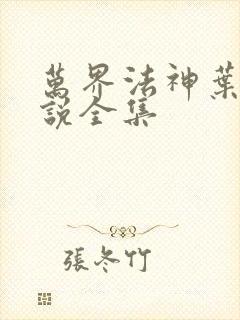 萬界法神葉
說全集
張冬竹